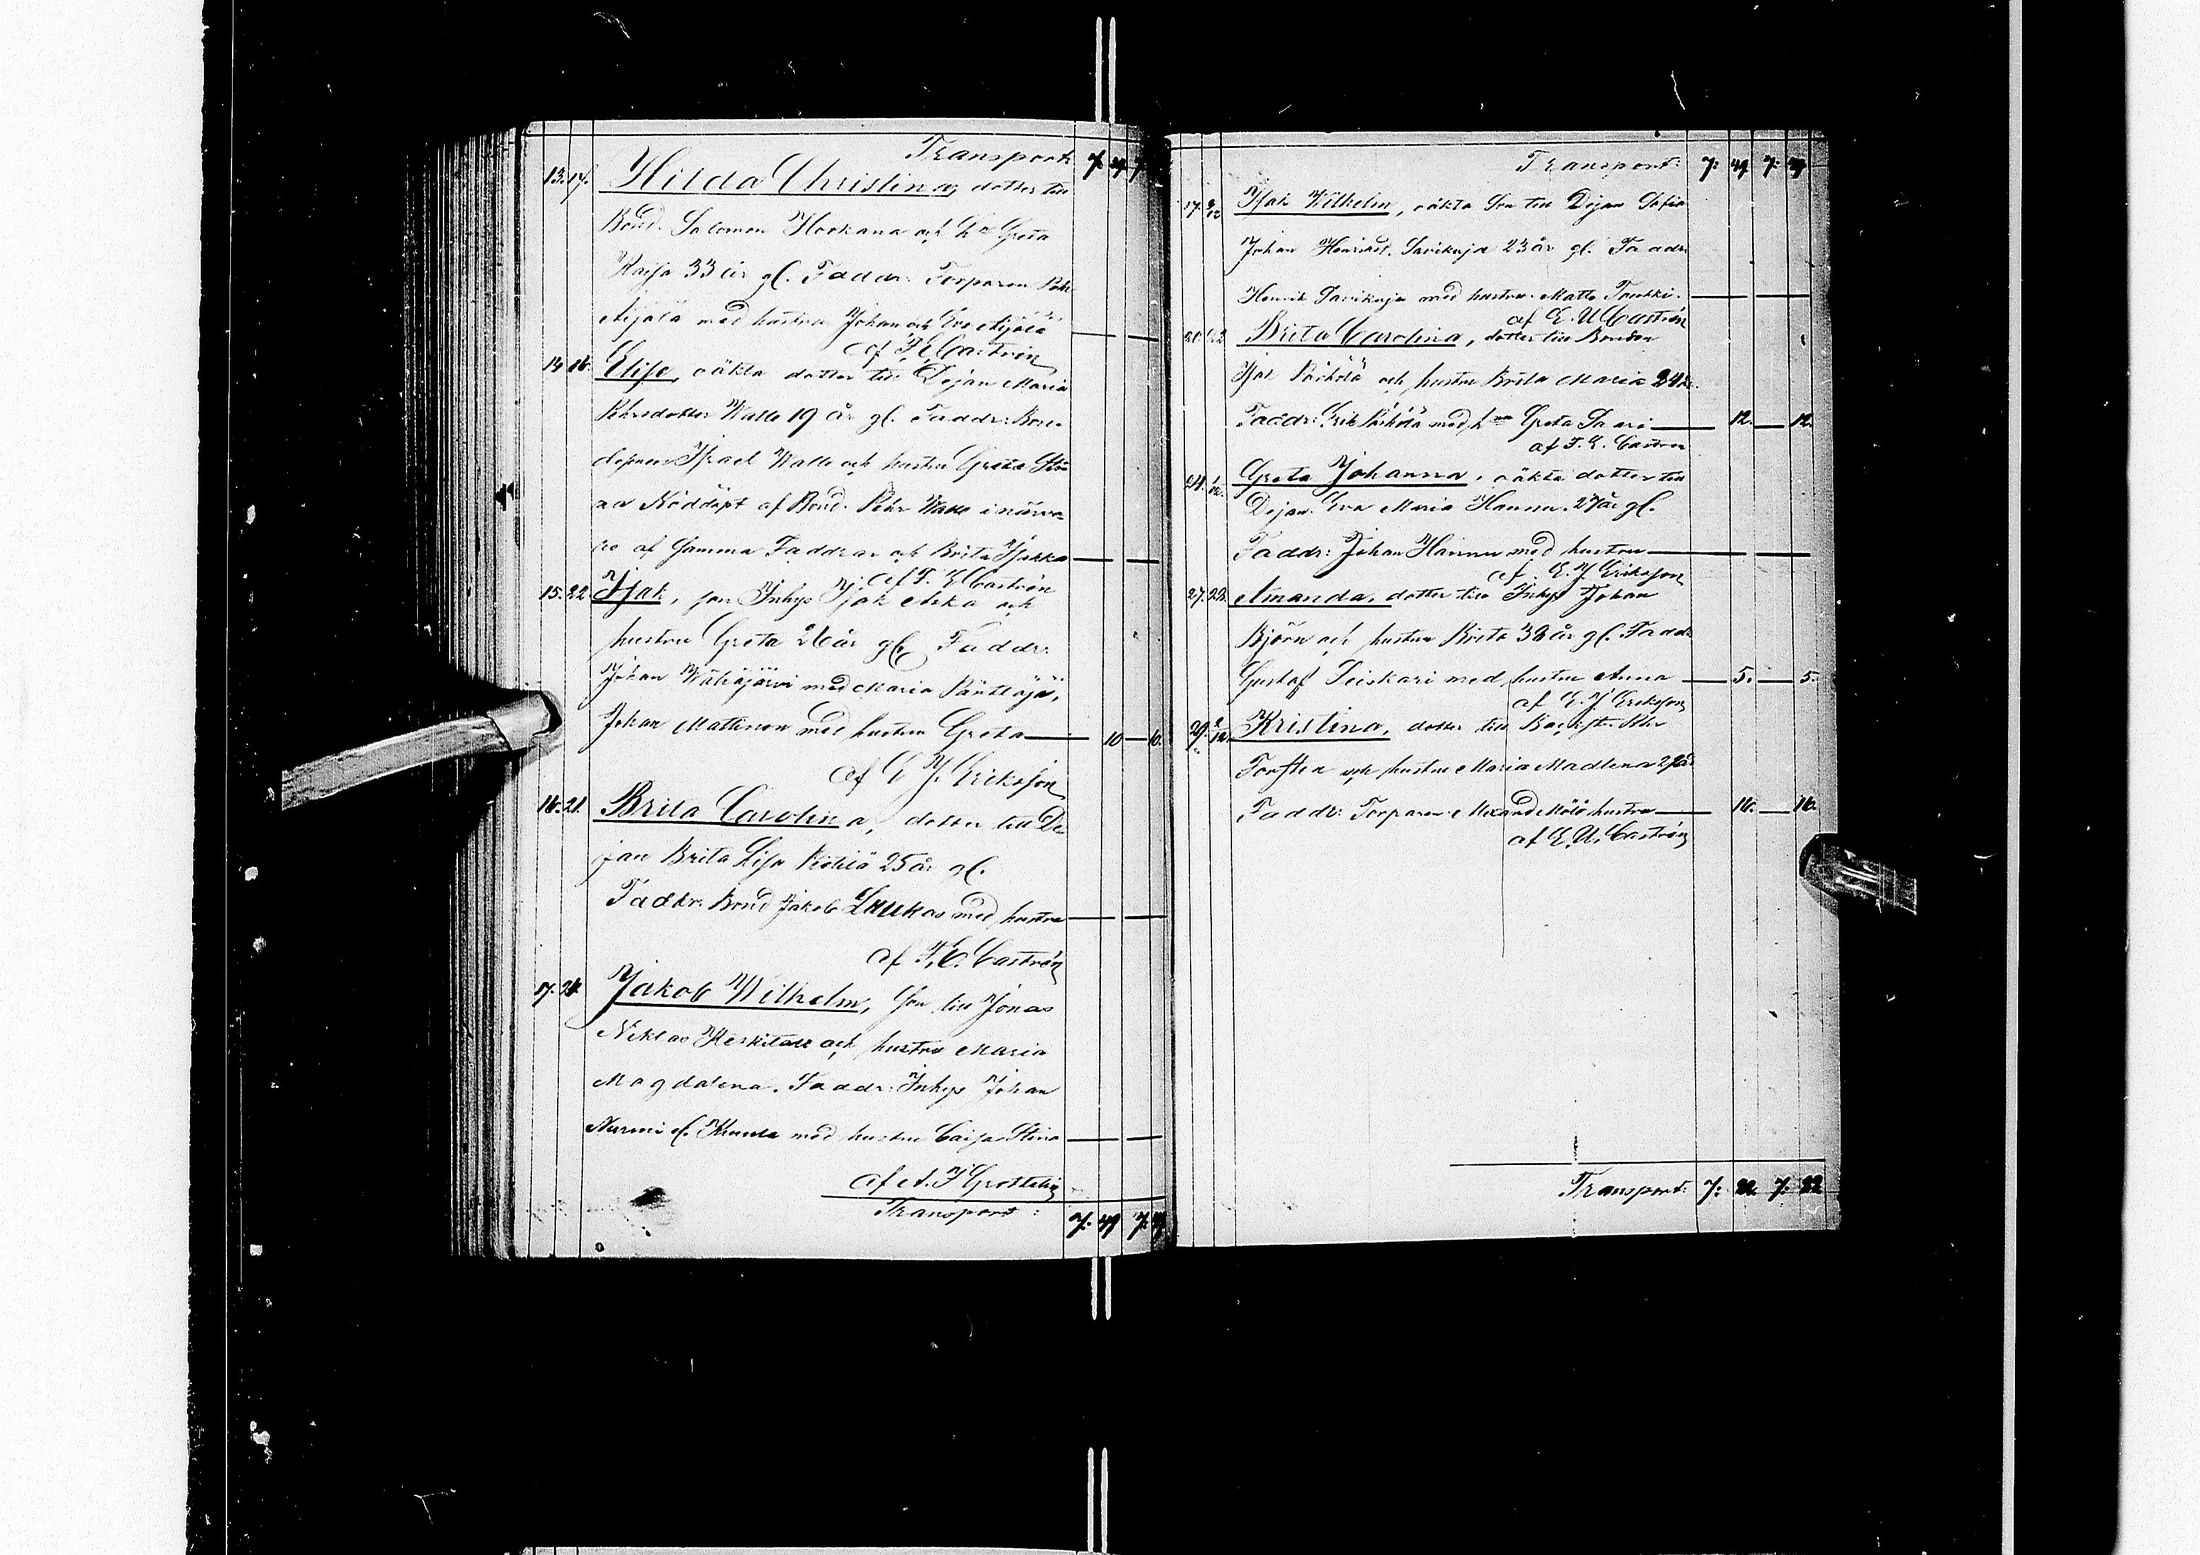 Transport: 7. 49 7.
13. 14. Hilda Christina, dotter till
Bond. Salomon Hookana och h Greta
Kaisa 33 år gl. Faddr. Torparen Pehr
Aijälä med hustru Johan och Eva Aijälä
af F. E. Castrén
14 16. Elise, oäkta dotter till Dejan Maria
Pehrsdotter Walle 19 år gl. Faddr: Bon-
desonen Israel Walle och hustru Greta
Nöddöpt af Bond. Pehr Walle i närva-
ro af samma Faddrar och Brita
af F. E. Castrén
15. 22. Isak, son Inhys Isak Aska och
hustru Greta 26 år gl. Faddr:
Johan Wähäjärvi med Maria Bänttäjä,
Johan Mattinen med hustru Greta 10 10.
af E J Eriksson
16. 21. Brita Carolina, dotter till De-
jan Brita Lisa 25 år gl.
Faddr. Bond Jakob Laukas med hustru
af F. E. Castrén
17. 24. Jakob Wilhelm, Son till Jonas
Niklas Keskitalo och hustru Maria
Magdalena. Faddr: Inhys Johan
Nurmi med hustru Caisa Stina
af A. F Grottelin
Transport: 7. 49 7. 49
Transport: 7: 49 7: 49
17. 2/12 Isak Wilhelm, oäkta Son till Dejan Sofia
Johan Henriksd. Sarikuja 23 år gl. Faddr.
Henrik Sarikuja med hustru. Matts
af E. U Castrén
Brita Carolina, dotter till Bonden
Isak och hustru Brita Maria 24 år.
Faddr: Erik med h Greta 12. 12.
af F. E. Castrén
24. Greta Johanna, oäkta dotter till
Dejan. Eva Maria Hannu. 27 år gl.
Faddr: Johan Hannu med hustru
af E. J. Eriksson
27. 28. Amanda, dotter till Inhys Johan
Björn och hustru Brita 38 år gl. Faddr
Gustaf Peiskari med hustru Anna 5. 5.
af E. J Eriksson
29. 2/12 Kristina, dotter till Backst. Pehr
Torsten och hustru Maria Madlena
Faddr: Torparen hustru 16. 16.
af E. U. Castrén
Transport: 7: 82 7: 82